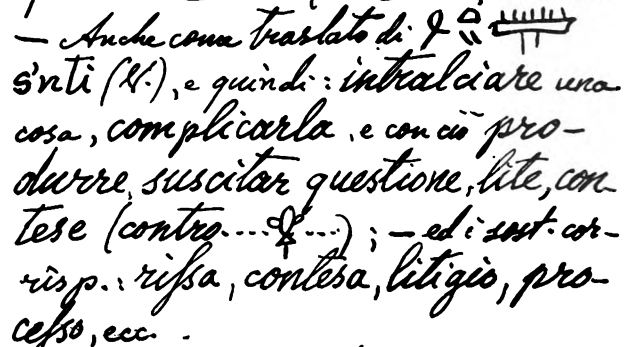 — Anche come traslato di
s'nti (V.), e quindi: intralciare una
cosa, complicarla, e con ciò pro-
durre, suscitar questione, lite, con-
tese (contro.........); — ed i sost. cor-
risp.: rissa, contesa, litigio, pro-
cesso, ecc.